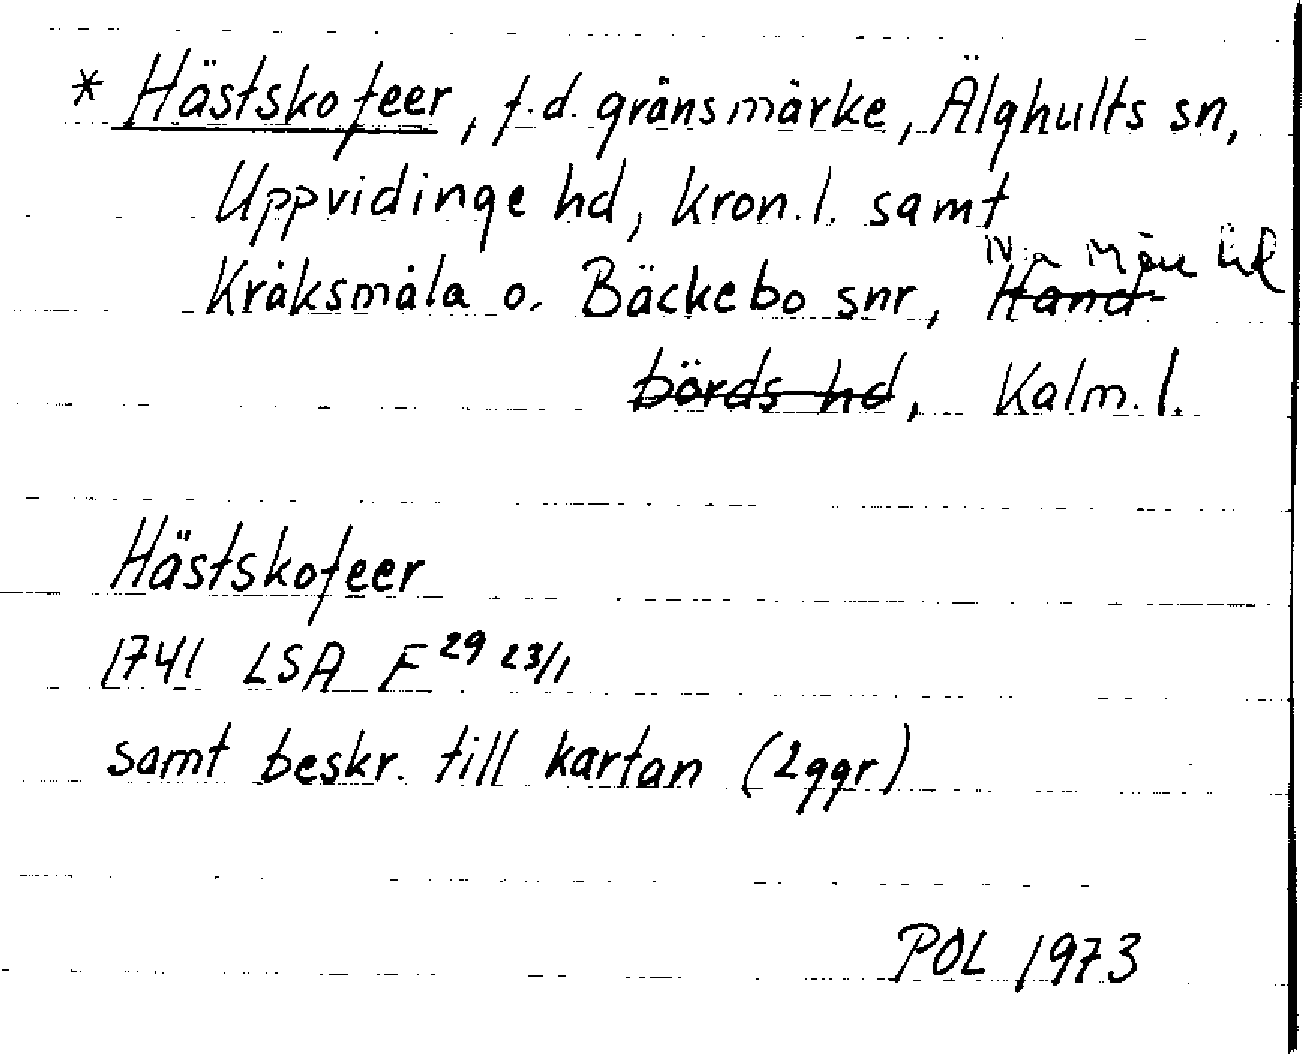 * Hästskofeer, f.d. gränsmärke, Älghults sn,
Uppvidinge hd, Kron.l. samt
N:a Möre hd
Kråksmåla o. Bäckebo snr, Hand-
börds hd, Kalm.l.
Hästskofeer
1741 LSA F 29 23/1
samt beskr. till kartan (2ggr)
POL 1973